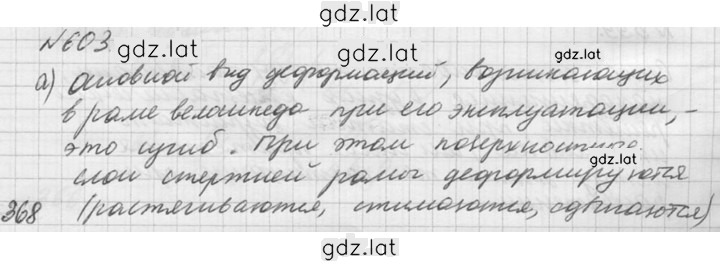 gdz.lat
№603
gdz.lat
а) Основной вид деформаций, возникающих
в раме велосипеда при его эксплуатации, -
это изгиб. При этом поверхностные
gdz.lat
слои стержней рамы деформируются
368 (растягиваются, сжимаются, сдвигаются)
gdz.lat